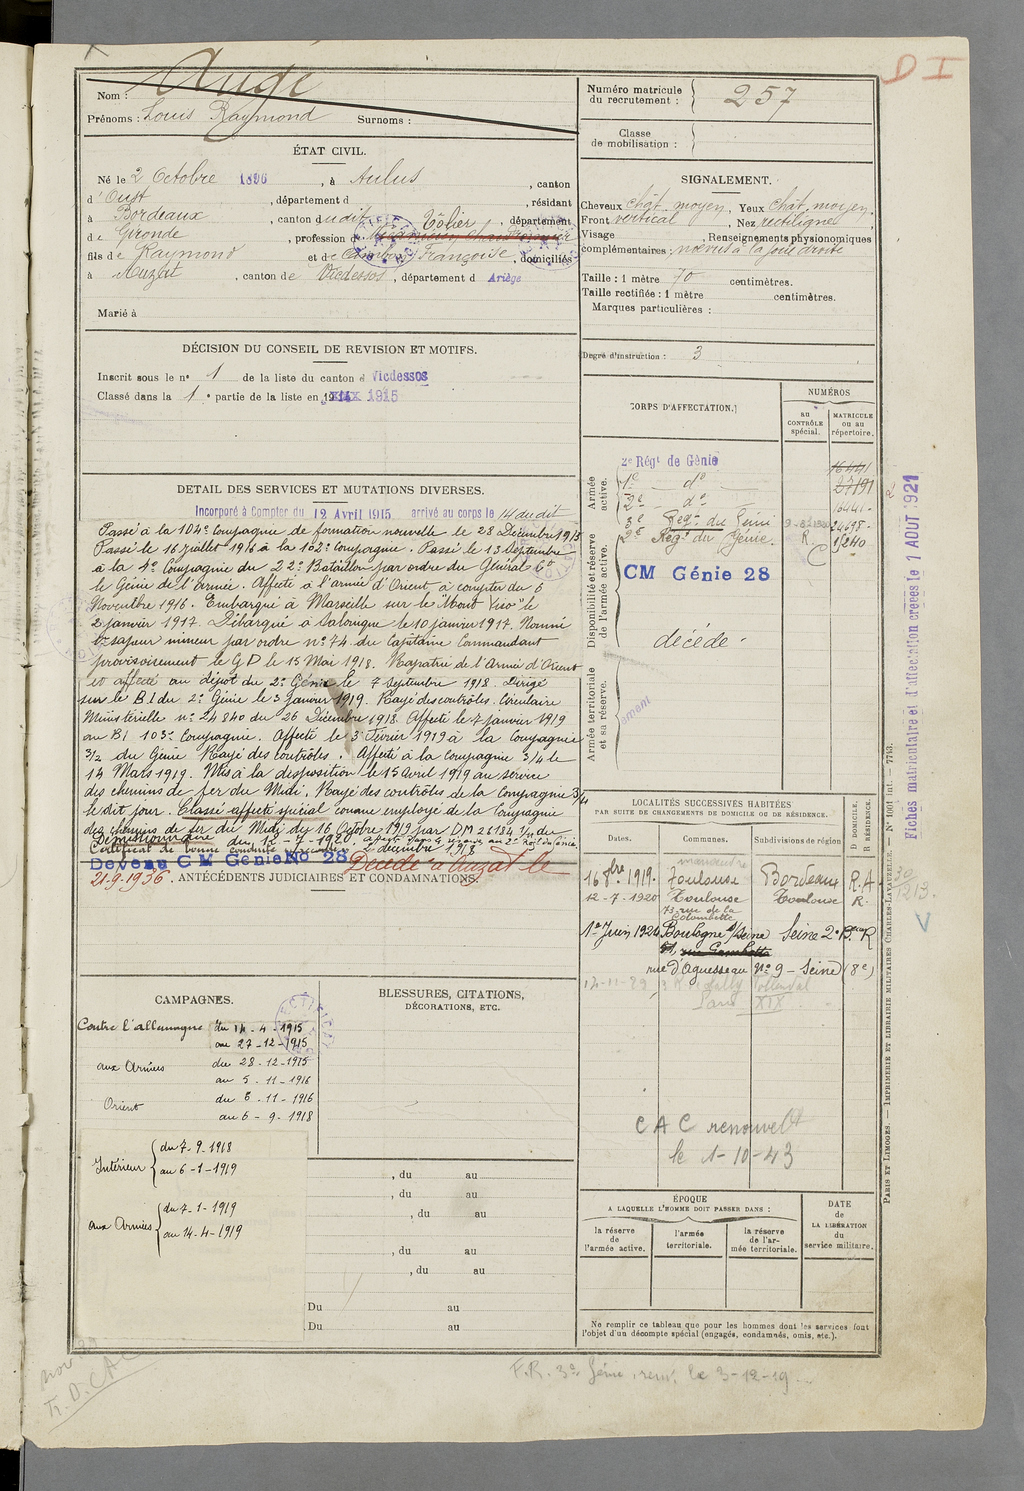 D I
Nom : Augé
Prénoms : Louis Raymond Surnoms :
Numéro matricule du recrutement : 257
Classe de mobilisation :
ÉTAT CIVIL.
Né le 2 Octobre 1896, à Aulus, canton
d'Oust, département d , résidant
à Bordeaux, canton dudit, département
de Gironde, profession de Tôlier
fils de Raymond et de Françoise, domiciliés
à Auzat, canton de Vicdessos, département d Ariège
Marié à
SIGNALEMENT.
Cheveux chât. moyen, Yeux chât. moyen.
Front vertical, Nez rectiligne
Visage , Renseignements physionomiques
complémentaires : noevus à la joue droite
Taille : 1 mètre 70 centimètres.
Taille rectifiée : 1 mètre centimètres.
Marques particulières :
Degré d'instruction : 3
DÉCISION DU CONSEIL DE REVISION ET MOTIFS.
Inscrit sous le n° 1 de la liste du canton d Vicdessos
Classé dans la 1e partie de la liste en 1915
DETAIL DES SERVICES ET MUTATIONS DIVERSES.
Incorporé à Compter du 12 Avril 1915 arrivé au corps le 14 dudit
Passé à la 104e Compagnie de formation nouvelle le 28 Décembre 1915
Passé le 16 juillet 1916 à la 162e Compagnie. Passé le 13 Septembre
à la 4e Compagnie du 22e Bataillon par ordre du Général Ct
le Génie de l'armée. Affecté à l'armée d'Orient à compter du 6
Novembre 1916. Embarqué à Marseille sur le "Mont Viso" le
2 janvier 1917. Débarqué à Salonique le 10 janvier 1917. Nommé
sapeur mineur par ordre n° 74 du Capitaine Commandant
provisoirement le G D le 15 Mai 1918. Rapatrié de l'Armée d'Orient
et affecté au dépôt du 2e Génie le 7 Septembre 1918. Dirigé
sur le B.I du 2e Génie le 3 janvier 1919. Rayé des contrôles. Circulaire
Ministérielle n° 24.840 du 26 Décembre 1918. Affecté le 7 janvier 1919
au BI 103e Compagnie. Affecté le 3 Février 1919 à la Compagnie
3/2 du Génie Rayé des contrôles. Affecté à la Compagnie 3/4 le
14 Mars 1919. Mis à la disposition le 15 avril 1919 au service
des chemins de fer du Midi. Rayé des contrôles de la Compagnie 3/4
le dit jour. Classé affecté spécial comme employé de la Compagnie
des chemins de fer du Midi du 16 Octobre 1919 par DM 26184 3/11 du
2 décembre 1918
Démissionnaire du 12-7-1920.
Devenu CM Génie No 28 Décédé à Auzat le
21-9-1936.
ANTÉCÉDENTS JUDICIAIRES ET CONDAMNATIONS.
CORPS D'AFFECTATION.
NUMÉROS
au CONTRÔLE spécial.
MATRICULE ou au répertoire.
Armée active.
2e Régt de Génie 16441
1e do 27191
2e do 16441
3e Régt du Génie 24698
2e Régt du Génie. R. 1240
C
Disponibilité et réserve de l'armée active.
CM Génie 28
décédé
Armée territoriale et sa réserve.
Fiches matriculaire et d'affectation créées le 1 AOUT 1921
LOCALITÉS SUCCESSIVES HABITÉES
PAR SUITE DE CHANGEMENTS DE DOMICILE OU DE RÉSIDENCE.
D DOMICILE. R RÉSIDENCE.
Dates. Communes. Subdivisions de région
16 8bre 1919. Toulouse Bordeaux R.A
12-7-1920 Toulouse Toulouse R.
73 rue de la Colombette
1er Juin 1924 Boulogne s/Seine Seine 2e Beau R
51, rue Gambetta
rue d'Aguesseau no 9 - Seine (8e)
Paris XIX
CAC renouvelé
le 1-10-43
CAMPAGNES.
Contre l'allemagne du 14-4-1915
au 27-12-1915
aux Armées du 28-12-1915
au 5-11-1916
Orient du 6-11-1916
au 6-9-1918
Intérieur du 7-9-1918
au 6-1-1919
aux Armées du 7-1-1919
au 14-4-1919
BLESSURES, CITATIONS,
DÉCORATIONS, ETC.
, du au
, du au
, du au
, du au
, du au
Du au
Du au
ÉPOQUE
A LAQUELLE L'HOMME DOIT PASSER DANS :
la réserve de l'armée active.
l'armée territoriale.
la réserve de l'armée territoriale.
DATE de LA LIBÉRATION du service militaire.
Ne remplir ce tableau que pour les hommes dont les services font
l'objet d'un décompte spécial (engagés, condamnés, omis, etc.).
PARIS ET LIMOGES. — IMPRIMERIE ET LIBRAIRIE MILITAIRES CHARLES-LAVAUZELLE. — N° 1061 int. — 7743.
F.R. 3e Génie, rem. le 3-12-19